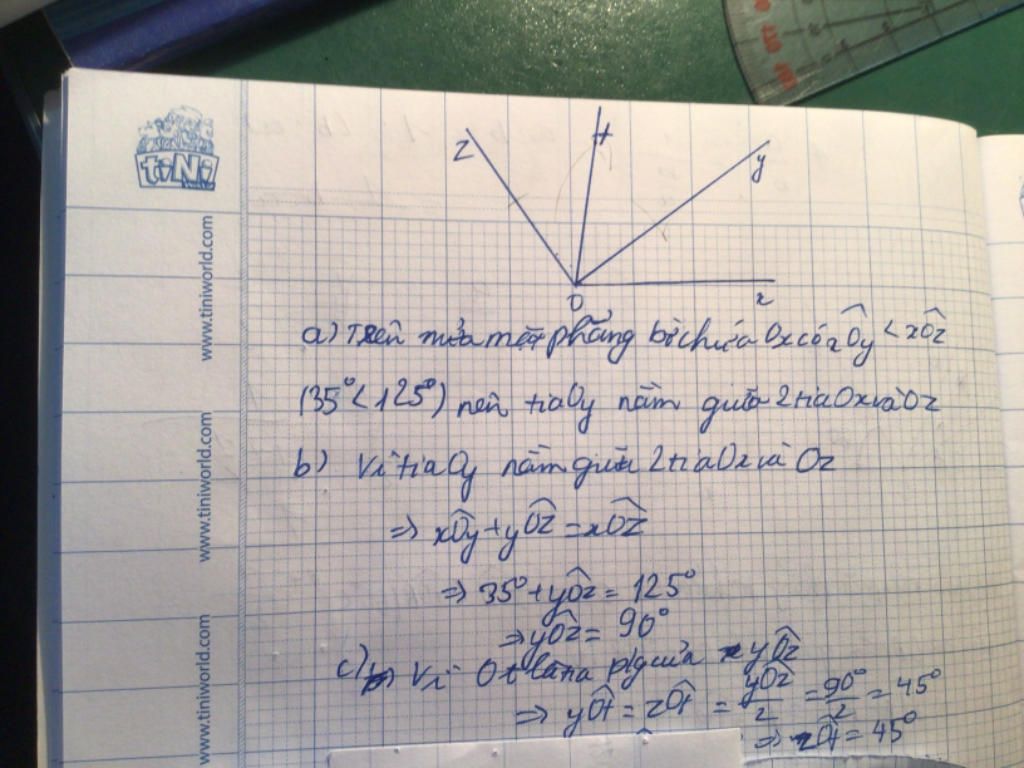 tiNi
www.tiniworld.com
www.tiniworld.com
www.tiniworld.com
z
t
y
O
x
a) Trên nửa mặt phẳng bờ chứa Ox có xÔy < xÔz
(35° < 125°) nên tia Oy nằm giữa 2 tia Ox và Oz
b) Vì tia Oy nằm giữa 2 tia Ox và Oz
=> xÔy + yÔz = xÔz
=> 35° + yÔz = 125°
=> yÔz = 90°
c) Vì Ot là tia p/g của yÔz
=> yÔt = zÔt = yÔz/2 = 90°/2 = 45°
=> zÔt = 45°